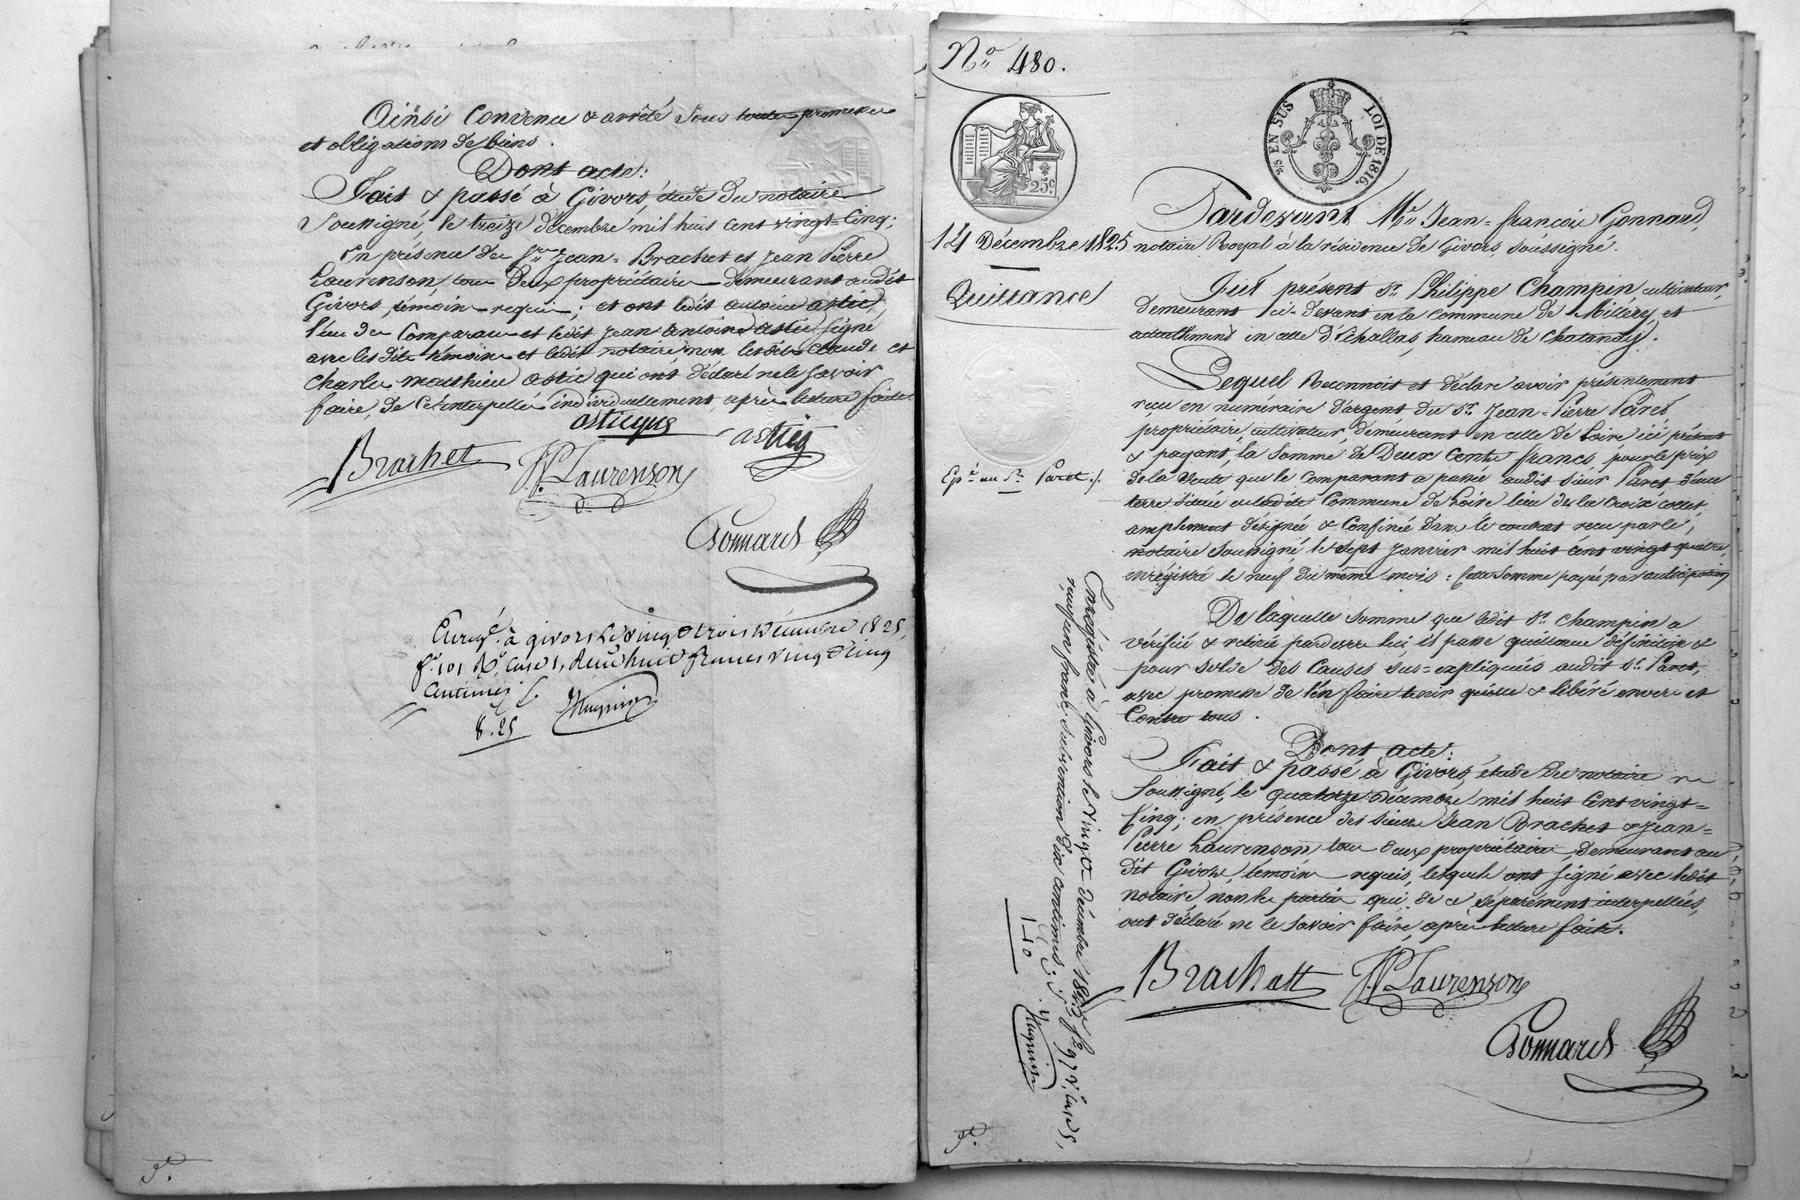 Ainsi Convenu & arrêté sous toutes promesses
et obligations de biens.
Dont acte:
Fait & passé à Givors, étude du notaire
Soussigné, le treize décembre mil huit cent vingt-cinq;
En présence des Srs Jean-Brachet et Jean Pierre
Laurenson, tous deux propriétaires demeurant audit
Givors, témoins requis; et ont ledit antoine astic,
l'un des Comparans et ledit Jean antoine astic, signé
avec lesdits témoins et ledit notaire, non lesdits claude et
Charles matthieu astic qui ont déclaré ne le savoir
faire, de Ce interpellés individuellement, après lecture faite.
astic
Brachet JP. Laurenson
Gonnard
Enregé. à givors le vingt trois décembre 1825,
fo. 101 Ro. Case 1, Reçu huit francs vingt cinq
centimes
8.25
Huguin
No. 480.
25c
2/5 EN SUS LOI DE 1816.
14 Décembre 1825
Quittance
Epé. au Sr. Paret ./.
Pardevant Me. Jean-françois Gonnard,
notaire Royal à la résidence de Givors, soussigné.
Fut présent Sr. Philippe Champin, cultivateur,
demeurant ci-devant en la commune de Millery, et
actuellement en celle d'Echallas, hameau de Chatanay.
Lequel Reconnoit et déclare avoir présentement
reçu en numéraire d'argent du Sr. Jean-Pierre Paret
propriétaire, cultivateur, demeurant en celle de Loire ici présent
& payant, la somme de Deux Cents francs, pour le prix
de la vente que le Comparant a passée audit sieur Paret d'une
terre située en ladite Commune de Loire lieu de la Croix collet,
amplement désignée & Confinée dans le contrat reçu par le
notaire soussigné, le sept Janvier mil huit cent vingt quatre,
enrégistré le neuf du même mois: Cette somme payée par anticipation
De laquelle somme que ledit Sr. champin a
vérifié & retirée pardevers lui, il passe quittance définitive &
pour solde des Causes sus-expliquées audit Sr. Paret,
avec promesse de l'en faire tenir quitte & libéré envers et
Contre tous.
Dont acte:
Fait & passé à Givors, étude du notaire
Soussigné, le quatorze Décembre mil huit Cent vingt-
Cinq; en présence des sieurs Jean Brachet & Jean-
Pierre Laurenson tous deux propriétaires, demeurant au
dit Givors, témoins requis, lesquels ont signé avec ledit
notaire, non les parties qui de ce séparément interpellées,
ont déclaré ne le savoir faire, après lecture faite.
Brachet JP. Laurenson
Gonnard
Enregistré à Givors le vingt décembre 1825 fo. 97 Vo. Case 5,
reçu un franc, subvention dix centimes.
1-10
Huguin